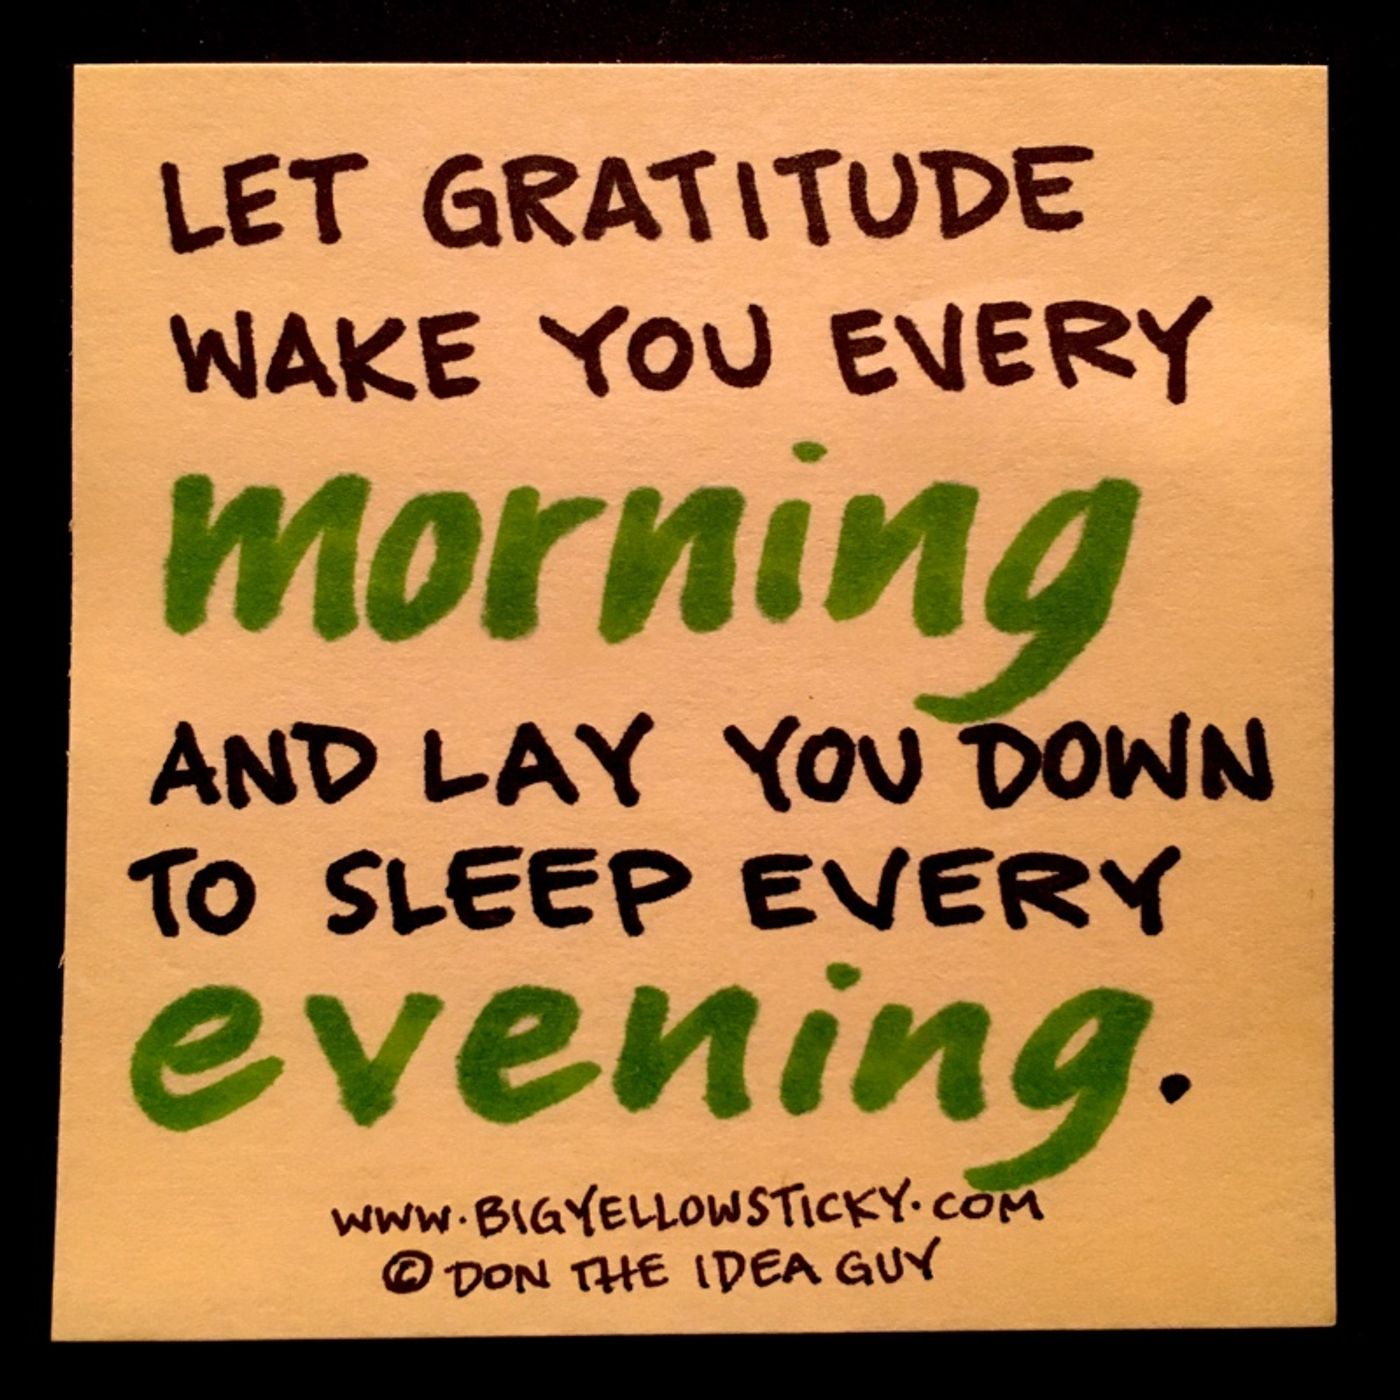 LET GRATITUDE
WAKE YOU EVERY
morning
AND LAY YOU DOWN
TO SLEEP EVERY
evening.
WWW.BIGYELLOWSTICKY.COM
© DON THE IDEA GUY